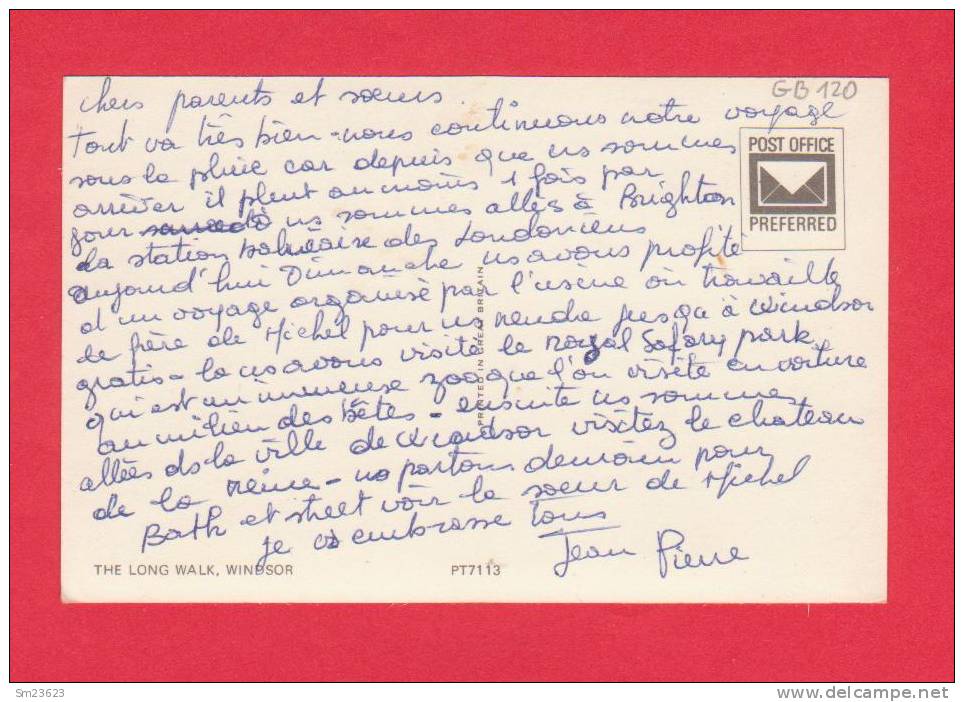 GB 120
chers parents et soeurs.
Tout va très bien - nous continuons notre voyage
sous la pluie car depuis que ns sommes
arriver il pleut au moins 1 fois par
jour ns sommes allés à Brighton
la station balnéaire des Londoniens
aujourd'hui Dimanche ns avons profité
d'un voyage organisé par l'usine où travaille
le frère de Michel pour ns rendre jusqu'à Windsor
gratis - la ns avons visité le royal Safary park
qui est un immense zoo que l'on visite en voiture
au milieu des bêtes - ensuite ns sommes
allés ds la ville de Windsor visitez le chateau
de la reine - ns partons demain pour
Bath et street voir la soeur de Michel
je vs embrasse Tous
Jean Pierre
POST OFFICE
PREFERRED
PRINTED IN GREAT BRITAIN
THE LONG WALK, WINDSOR
PT7113
Sm23623
www.delcampe.net